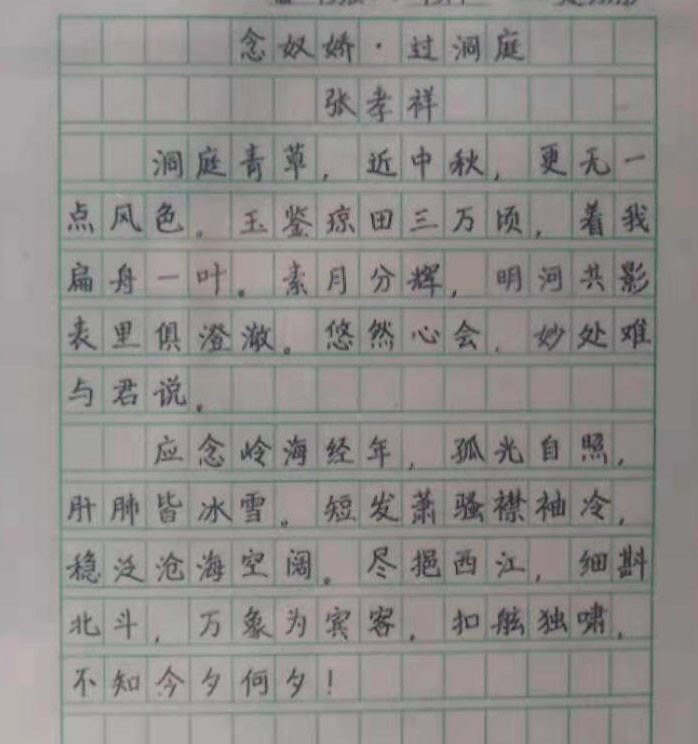 念奴娇·过洞庭
张孝祥
洞庭青草,近中秋,更无一
点风色。玉鉴琼田三万顷,着我
扁舟一叶。素月分辉,明河共影
表里俱澄澈。悠然心会,妙处难
与君说。
应念岭海经年,孤光自照,
肝肺皆冰雪。短发萧骚襟袖冷,
稳泛沧海空阔。尽挹西江,细斟
北斗,万象为宾客,扣舷独啸,
不知今夕何夕!